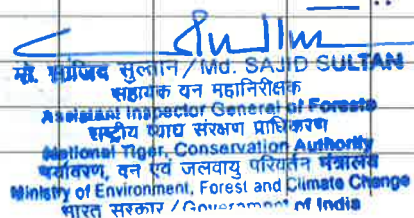 मो. साजिद सुल्तान / Md. SAJID SULTAN
सहायक वन महानिरीक्षक
Assistant Inspector General of Forests
राष्ट्रीय व्याघ्र संरक्षण प्राधिकरण
National Tiger, Conservation Authority
पर्यावरण, वन एवं जलवायु परिवर्तन मंत्रालय
Ministry of Environment, Forest and Climate Change
भारत सरकार / Government of India